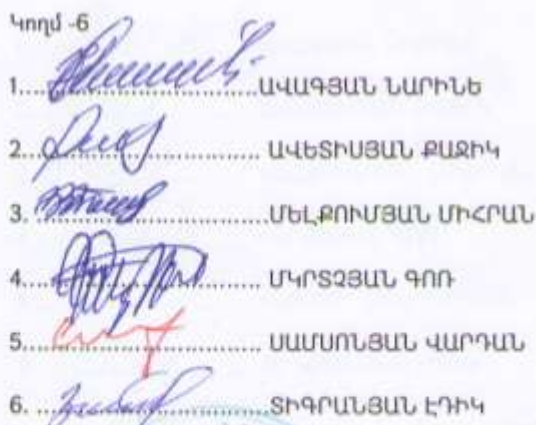 Կողմ -6
1.................................ԱՎԱԳՅԱՆ ՆԱՐԻՆԵ
2................................. ԱՎԵՏԻՍՅԱՆ ՔԱՋԻԿ
3. ...............................ՄԵԼՔՈՒՄՅԱՆ ՄԻՀՐԱՆ
4................................. ՄԿՐՏՉՅԱՆ ԳՈՌ
5................................. ՍԱՄՍՈՆՅԱՆ ՎԱՐԴԱՆ
6. ...............................ՏԻԳՐԱՆՅԱՆ ԷԴԻԿ